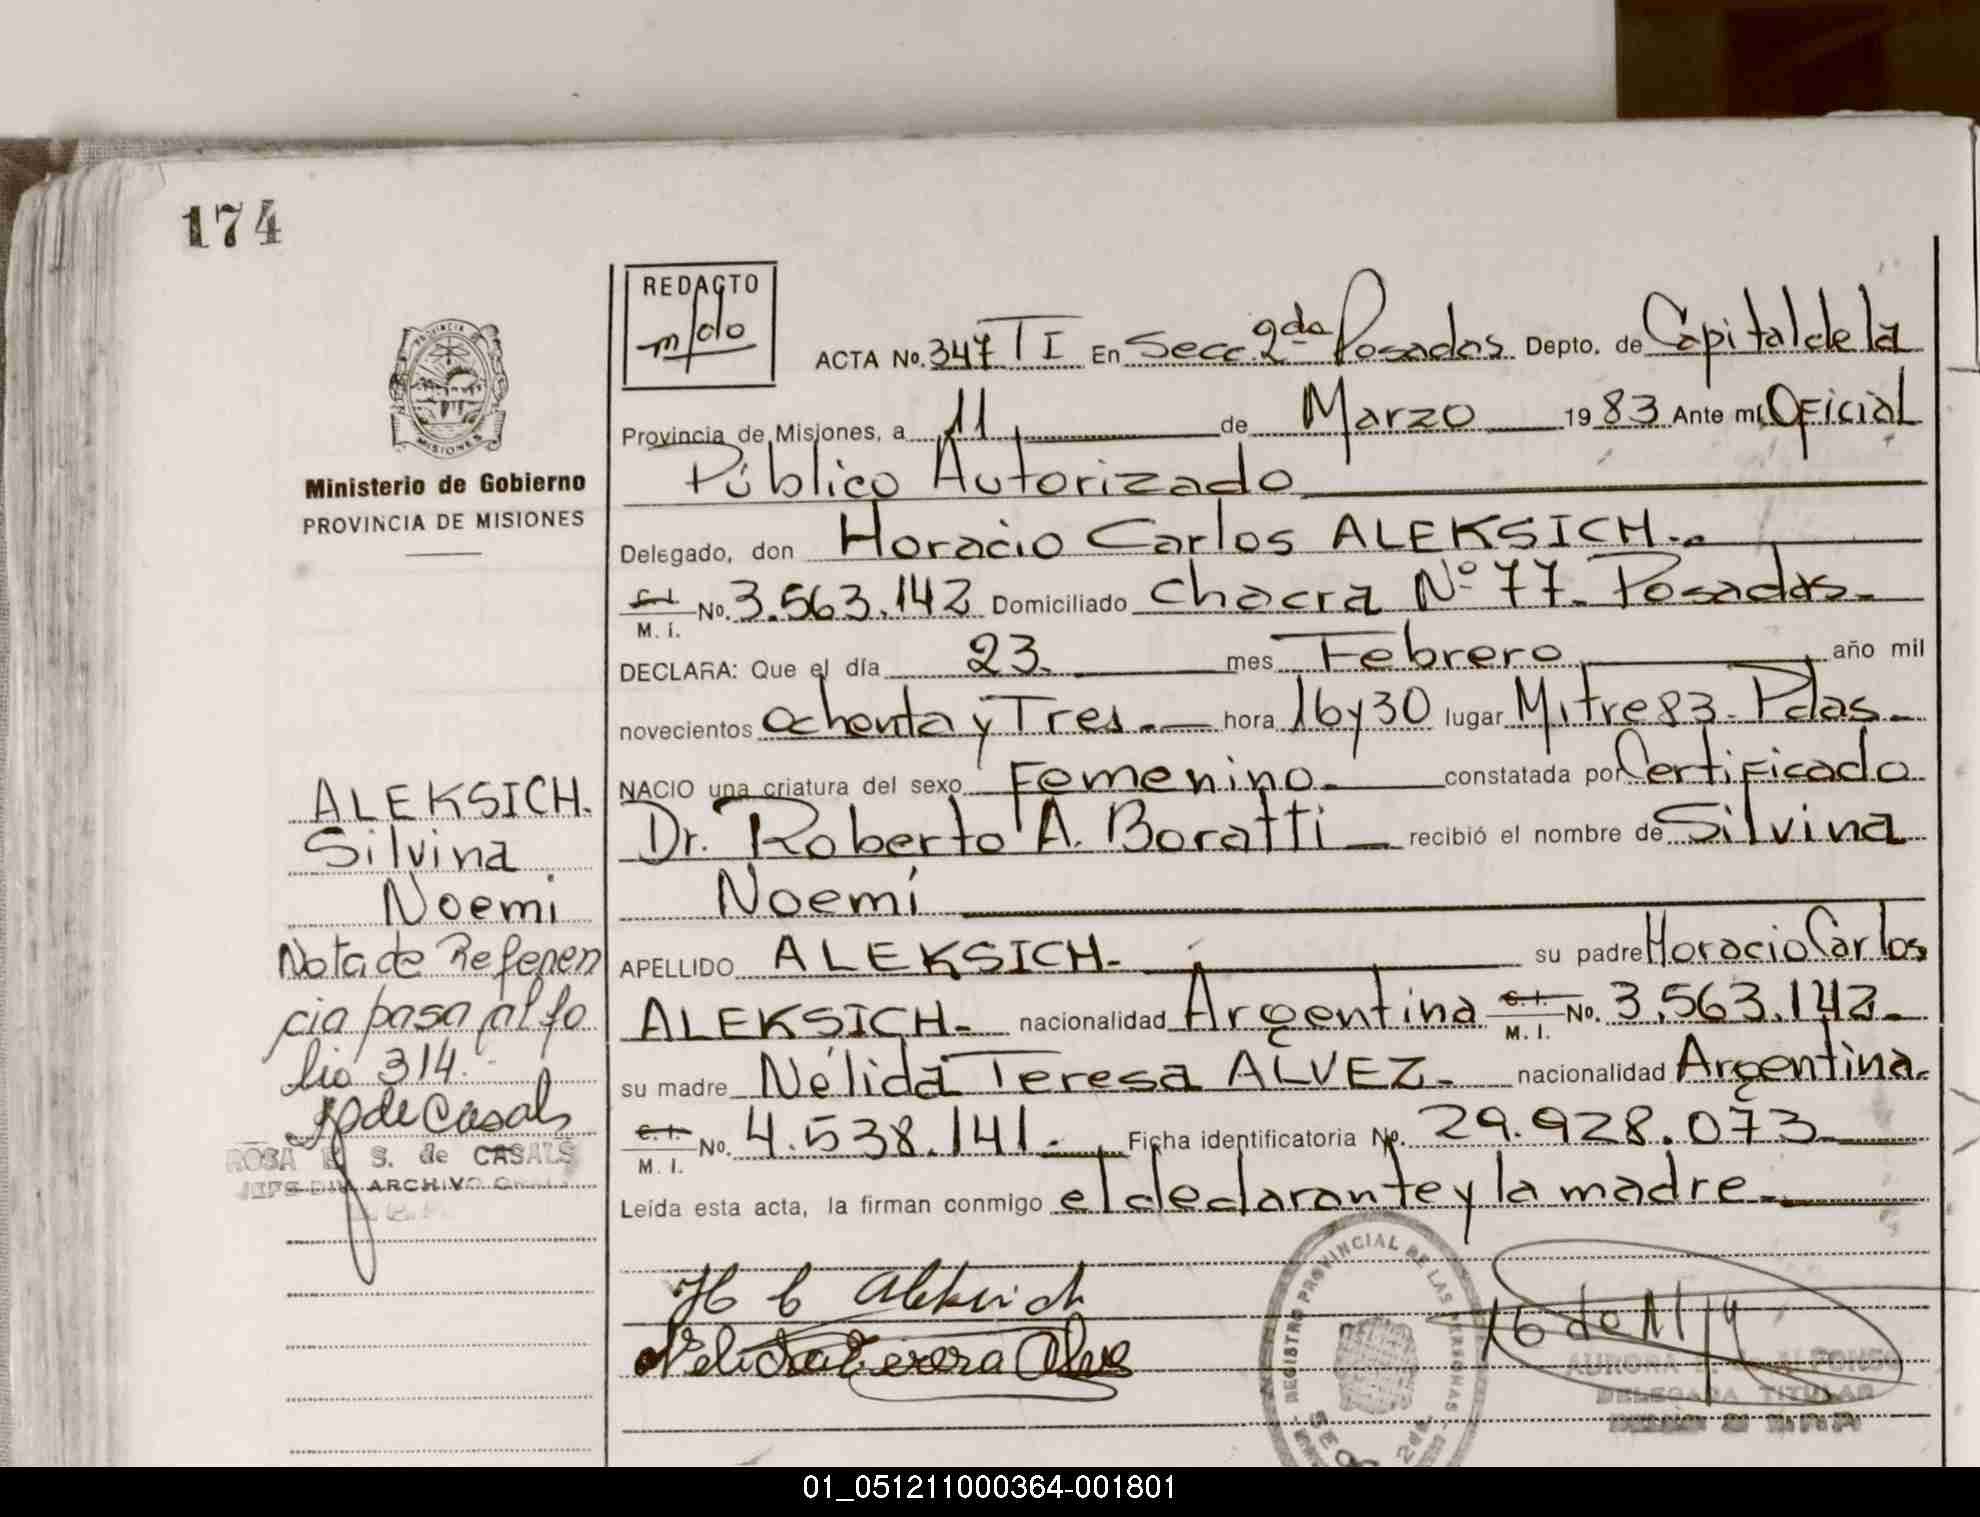 174
REDACTO
m/do
ACTA No. 347 TI En Secc. 2da Posadas Depto. de Capital de la
Provincia de Misiones, a 11 de Marzo 1983 Ante mi, Oficial
Público Autorizado
Delegado, don Horacio Carlos ALEKSICH.
C.I. M.I. No. 3.563.142 Domiciliado Chacra Nº 77. Posadas.
DECLARA: Que el día 23. mes Febrero año mil
novecientos ochenta y Tres. hora 16 y 30 lugar Mitre 83. Pdas.
NACIO una criatura del sexo Femenino. constatada por Certificado
Dr. Roberto A. Boratti recibió el nombre de Silvina
Noemí
APELLIDO ALEKSICH. su padre Horacio Carlos
ALEKSICH. nacionalidad Argentina C.I. M.I. No. 3.563.142.
su madre Nélida Teresa ALVEZ. nacionalidad Argentina.
C.I. M.I. No. 4.538.141. Ficha identificatoria No. 29.928.073
Leída esta acta, la firman conmigo el declarante y la madre.
H C Aleksich
PROVINCIA
MISIONES
Ministerio de Gobierno
PROVINCIA DE MISIONES
ALEKSICH.
Silvina
Noemi
Nota de Referen
cia pasa al fo
lio 314.
de Casals
ROSA E. S. de CASALS
JEFE DIV. ARCHIVO GRAL.
REGISTRO PROVINCIAL DE LAS PERSONAS
AURORA ALFONSO
DELEGADA TITULAR
01_051211000364-001801